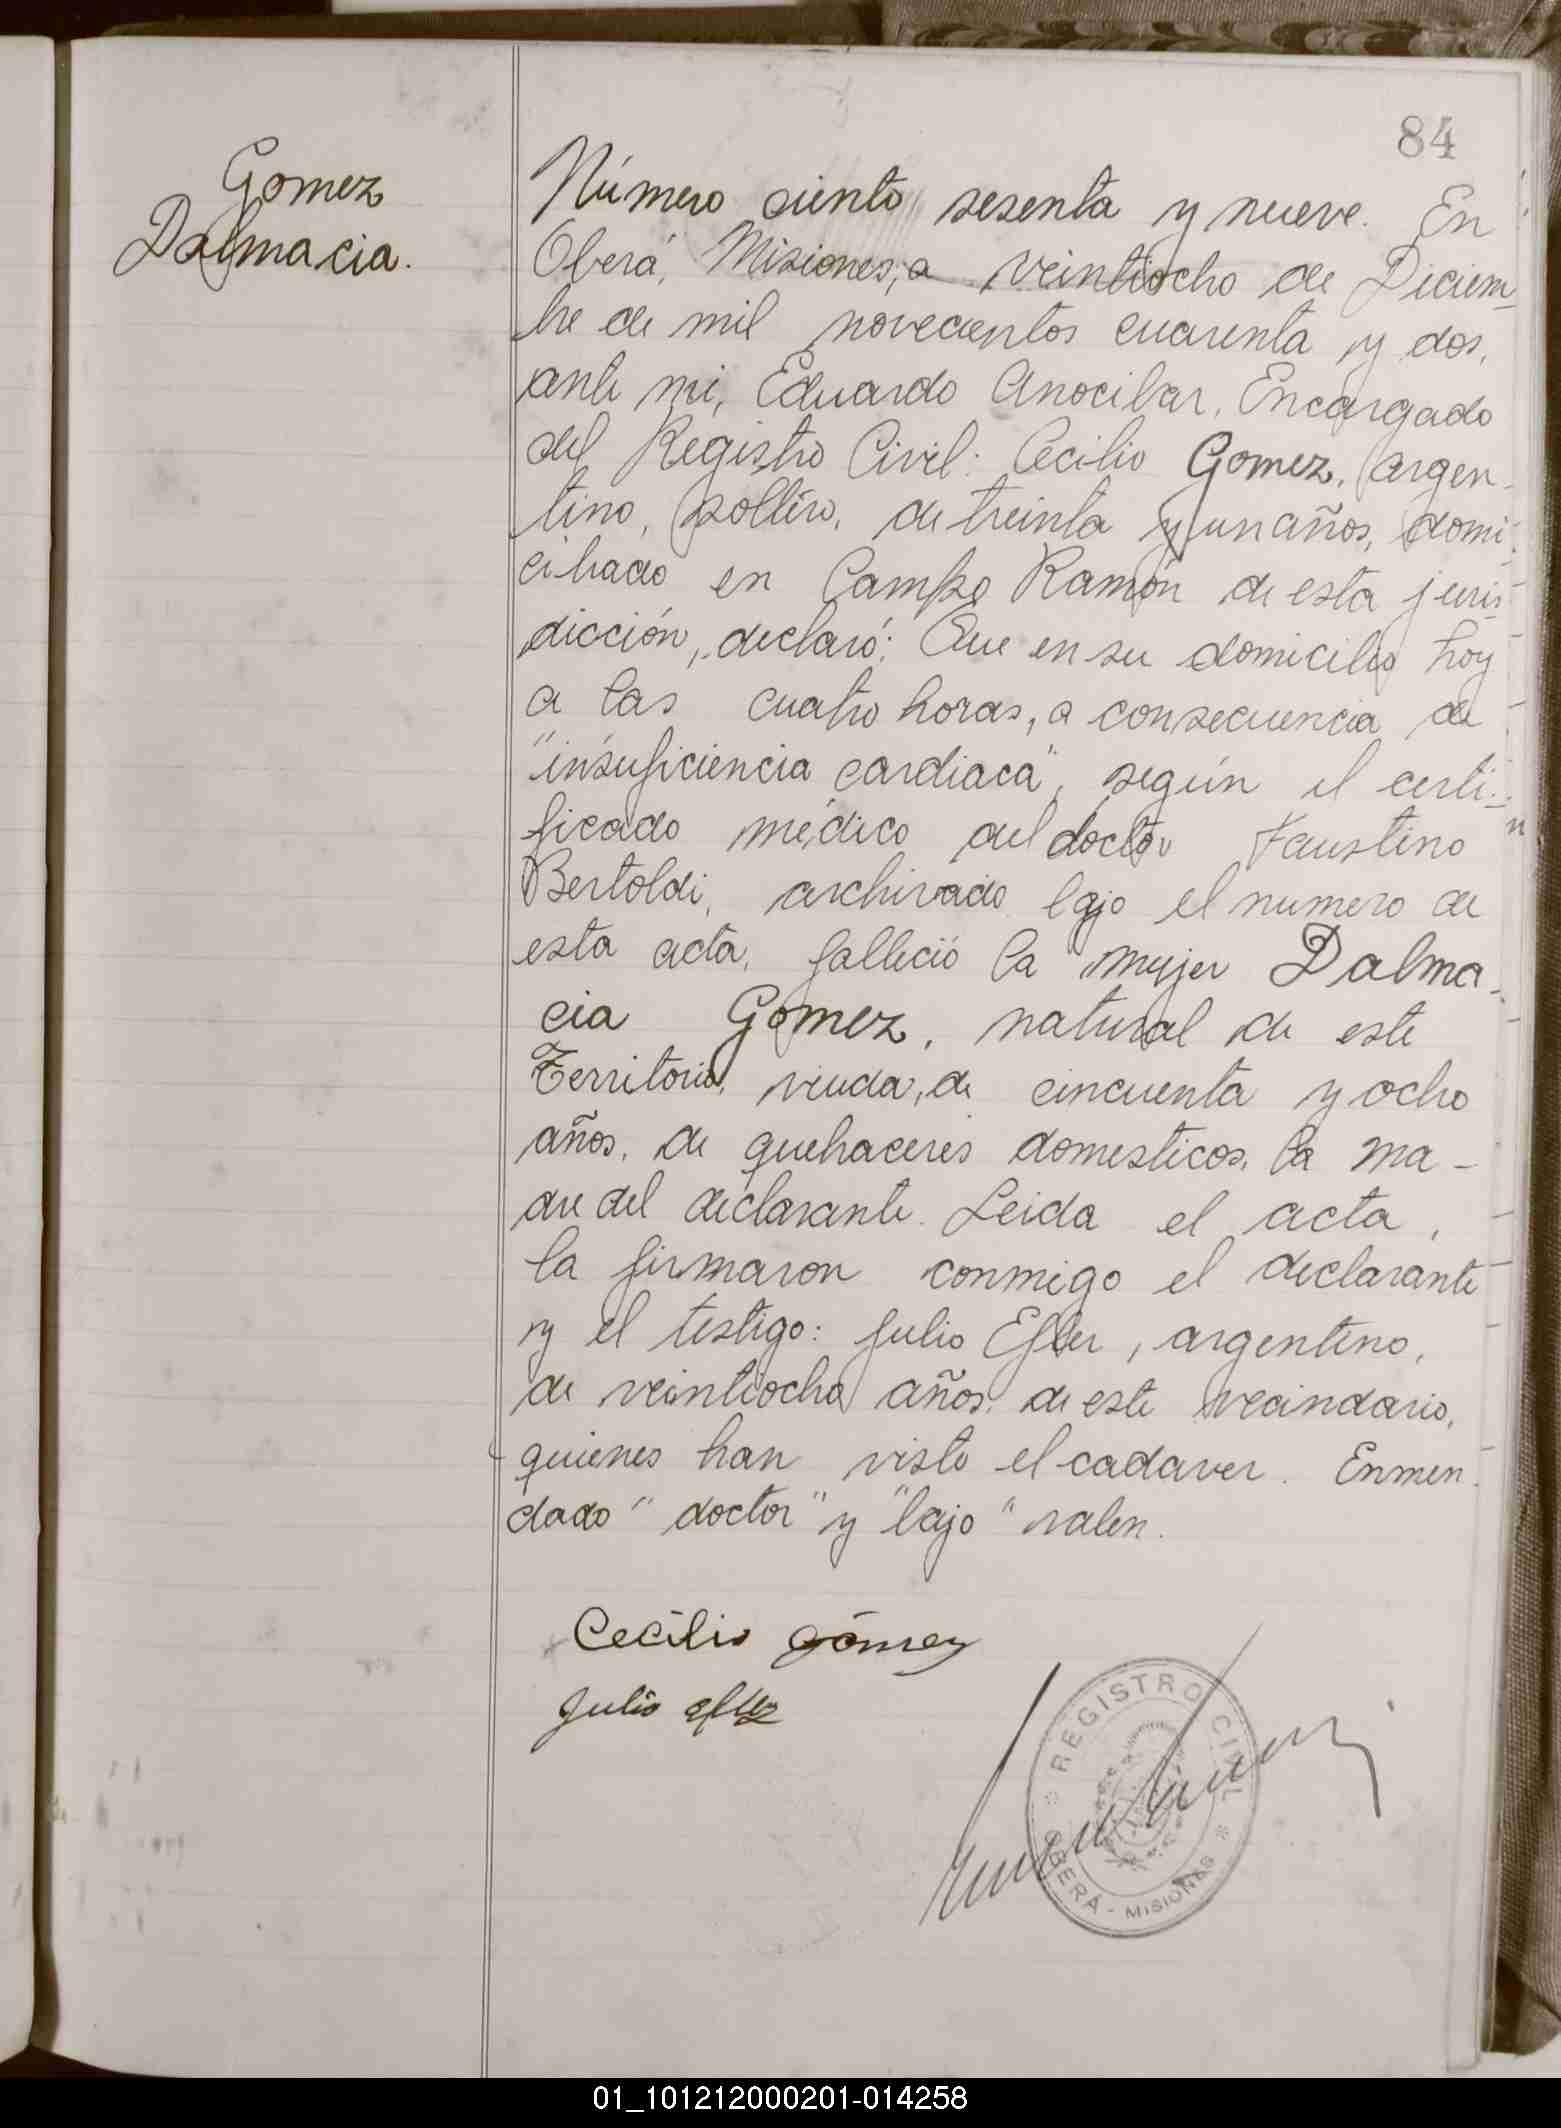 84
Gomez
Dalmacia.
Número ciento sesenta y nueve. En
Oberá, Misiones, a veintiocho de Diciem_
bre de mil novecientos cuarenta y dos,
ante mi, Eduardo Anocibar, Encargado
del Registro Civil: Cecilio Gomez, argen_
tino, soltero, de treinta y un años, domi_
ciliado en Campo Ramón de esta juris_
dicción, declaró: Que en su domicilio hoy
a las cuatro horas, a consecuencia de
"insuficiencia cardiaca", según el certi_
ficado médico del doctor Faustino
Bertoldi, archivado bajo el numero de
esta acta, falleció la mujer Dalma_
cia Gomez, natural de este
Territorio, viuda, de cincuenta y ocho
años, de quehaceres domesticos, la ma-
dre del declarante. Leida el acta,
la firmaron conmigo el declarante
y el testigo: Julio Efler, argentino,
de veintiocho años, de este vecindario,
quienes han visto el cadaver. Enmen_
dado "doctor" y "bajo" valen.
Cecilio Gómez
Julio
REGISTRO CIVIL
OBERÁ - MISIONES
01_101212000201-014258